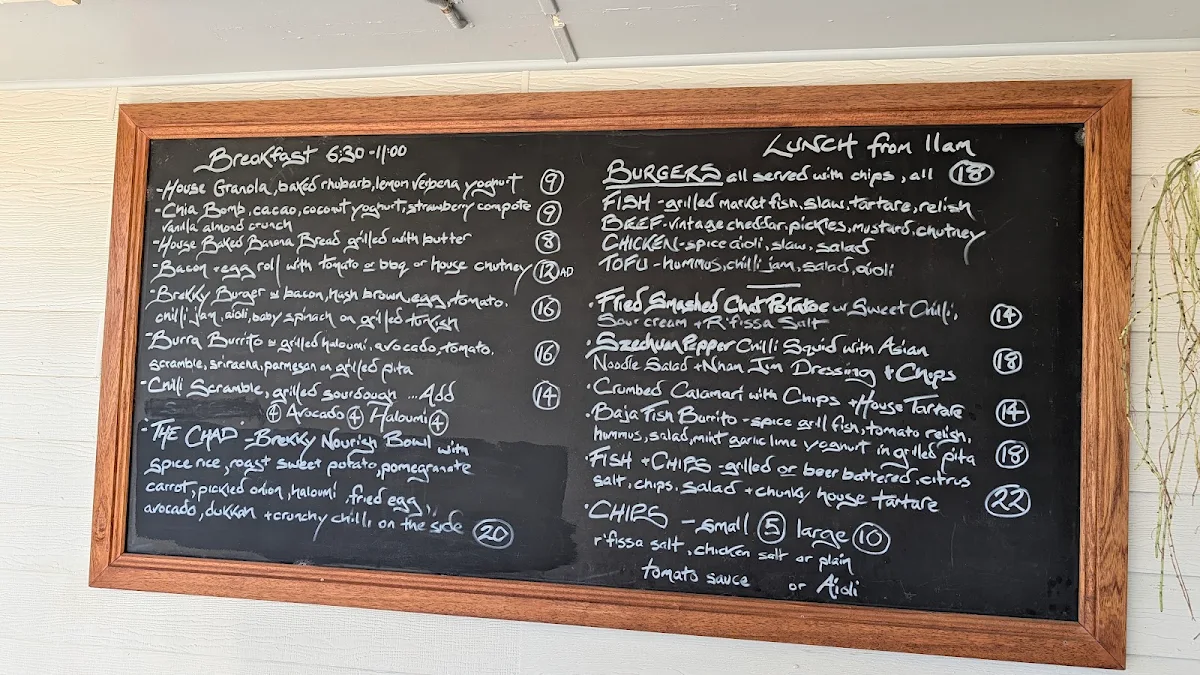 Breakfast 6:30-11:00
-House Granola, baked rhubarb, lemon verbena yoghurt 9
-Chia Bomb, cacao, coconut yoghurt, strawberry compote 9
vanilla almond crunch
-House Baked Banana Bread grilled with butter 8
-Bacon + egg roll with tomato or bbq or house chutney 12 AD
-Brekky Burger w bacon, hash brown, egg, tomato,
chilli jam, aioli, baby spinach on grilled turkish 16
-Burra Burrito w grilled haloumi, avocado, tomato,
scramble, sriracha, parmesan on grilled pita 16
-Chilli Scramble, grilled sourdough ... Add 14
4 Avocado 4 Haloumi 4
-THE CHAD -Brekky Nourish Bowl with
spice rice, roast sweet potato, pomegranate
carrot, pickled onion, haloumi, fried egg,
avocado, dukkah + crunchy chilli on the side 20
LUNCH from 11am
BURGERS all served with chips, all 18
FISH -grilled market fish, slaw, tartare, relish
BEEF -vintage cheddar, pickles, mustard, chutney
CHICKEN -spice aioli, slaw, salad
TOFU -hummus, chilli jam, salad, aioli
·Fried Smashed Chat Potatoe w Sweet Chilli,
Sour cream + R'fissa Salt 14
·Szechuan Pepper Chilli Squid with Asian
Noodle Salad + Nham Jim Dressing + Chips 18
·Crumbed Calamari with Chips + House Tartare 14
·Baja Fish Burrito - spice grill fish, tomato relish,
hummus, salad, mint garlic lime yoghurt in grilled pita 18
·FISH + CHIPS -grilled or beer battered, citrus
salt, chips, salad + chunky house tartare 22
·CHIPS -small 5 large 10
r'fissa salt, chicken salt or plain
tomato sauce or Aioli